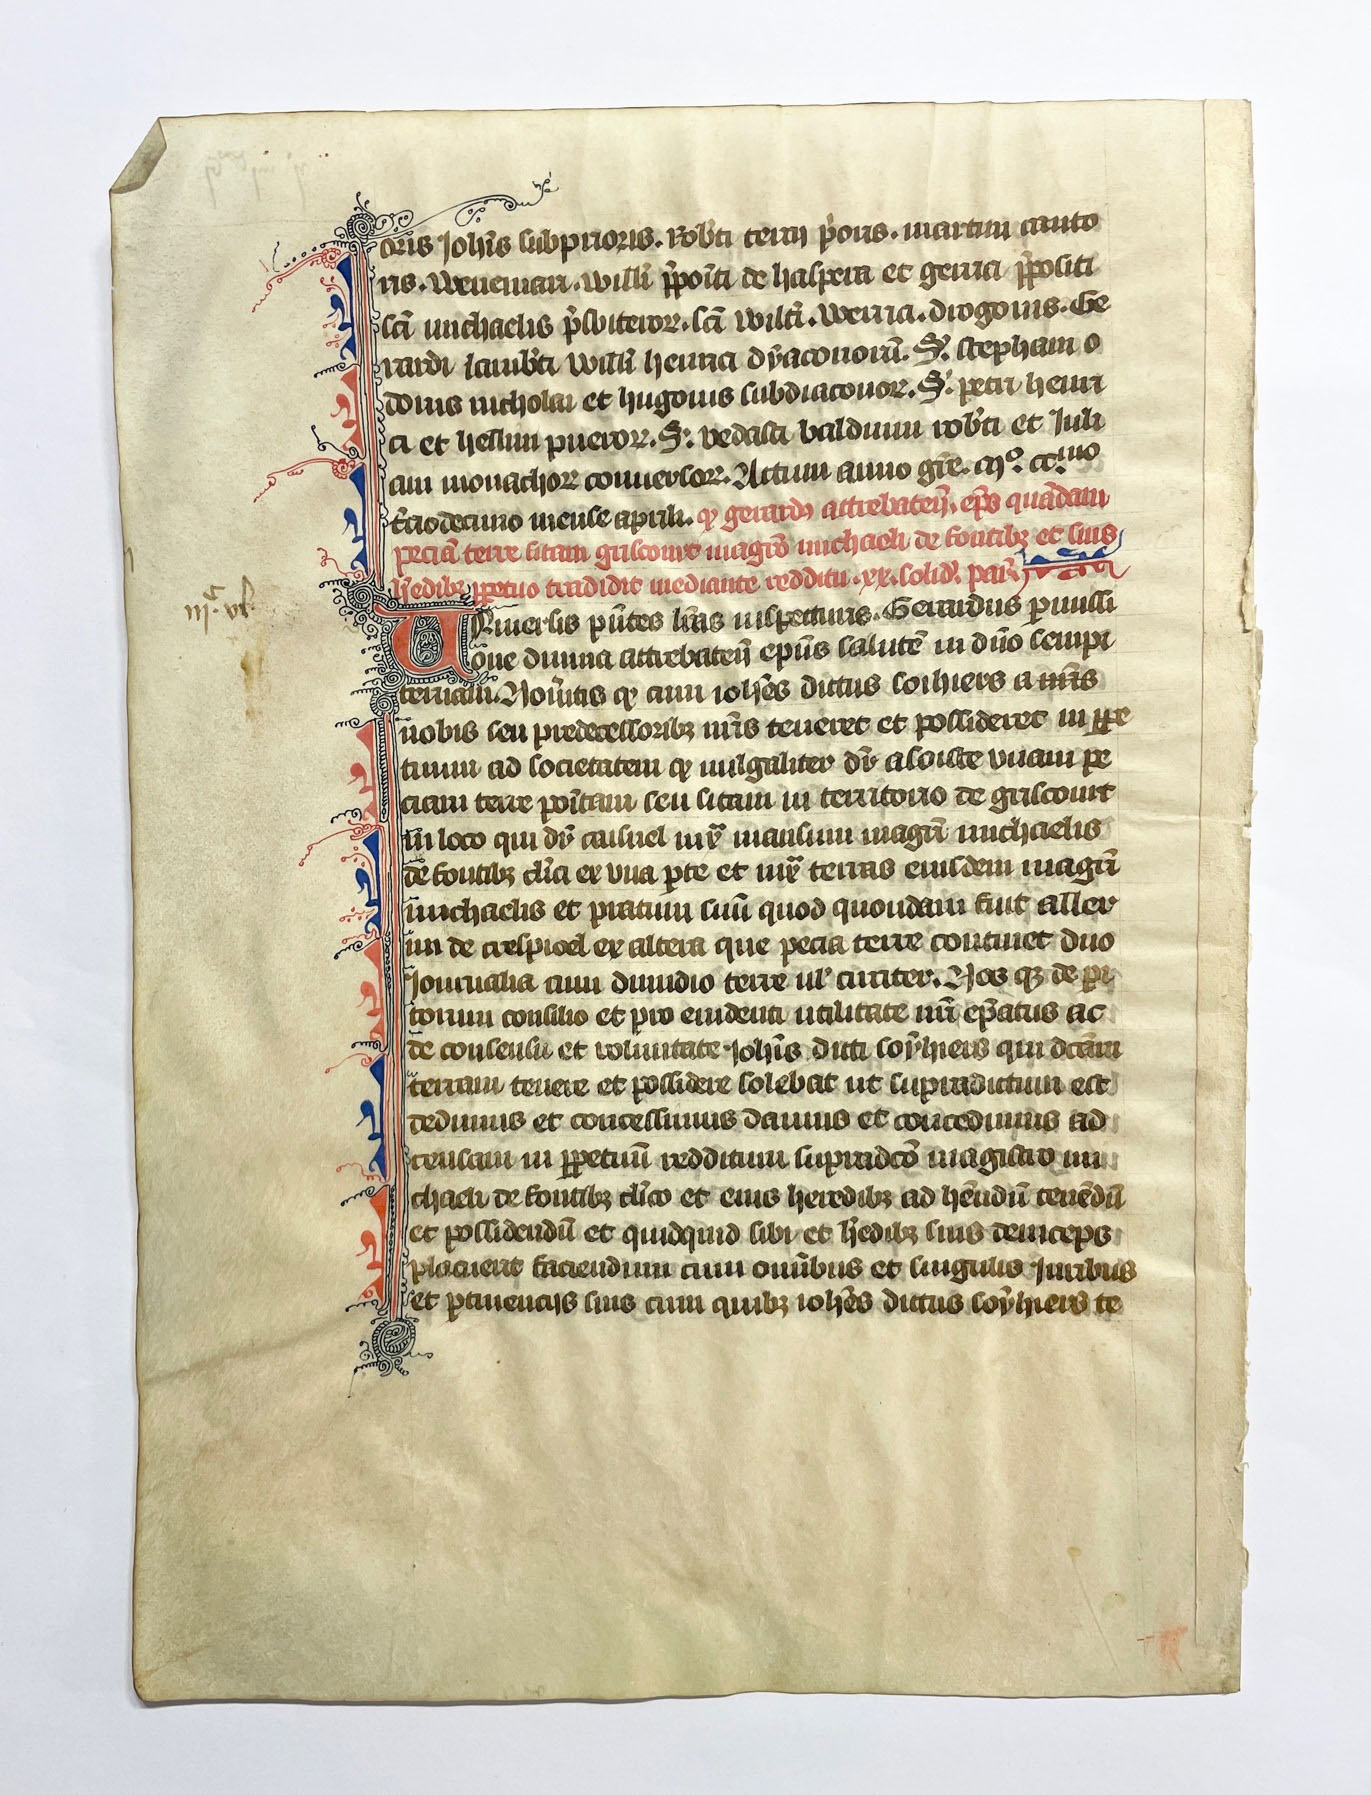 oris Joh̄is subprioris. Rob̄ti terrij p̄oris. martini canto
ris. Wenemari. Will̄i p̄positi de haspera et gerrici p̄positi
sc̄i michaelis p̄sbiteror. sc̄i Will̄i. Werrici. drogonis. Ge
rardi lamb̄ti Will̄i henrici dyaconorū. S. stephani o
donis nicholai et hugonis subdiaconor. S. petri henri
ci et hellini pueror. S. vedasti balduini rob̄ti et Juli
ani monachor conversor. Actum anno gr̄e. mº. ccmo
t̄ciodecimo mense aprili. qꝫ gerardꝰ attrebateñ. ep̄s quādam
peciā terre sitam griscourt magr̄o michaeli de fontibꝫ et suis
h̄edibꝫ ꝑpetuo tradidit mediante redditu. xx. solid'. par̄
Universis p̄ntes l̄ras inspecturis. Gerardus ꝑmissi
one divina attrebateñ ep̄us salutē in dn̄o sempi
ternam. Nov̄itis qꝫ cum ioh̄es dictus soihiers a nr̄is
nobis seu predecessoribꝫ nr̄is teneret et possideret in ꝑpe
tuum ad societatem qꝫ vulgaliter dr̄ a soiste unam pe
ciam terre poītam seu sitam in territorio de griscourt
in loco qui dr̄ caisnel iuxͣ mansum magr̄i michaelis
de fontibꝫ cl̄ici ex una ꝑte et iuxͣ terras eiusdem magr̄i
michaelis et pratum suū quod quondam fuit aller
mi de crespioel ex altera que pecia terre continet duo
Jornalia cum dimidio terre ul' circiter. Nos qꝫ de ꝑi
torum consilio et pro evidenti utilitate nr̄i ep̄atus ac
de consensu et voluntate Joh̄is dicti soyhiers qui dc̄am
terram tenere et possidere solebat ut supradictum est
dedimus et concessimus damus et concedimus ad
censam in ꝑpetuū redditum supradc̄o magistro mi
chaeli de fontibꝫ cl̄ico et eius heredibꝫ ad hēndū tenēdū
et possidendū et quidquid sibi et h̄edibꝫ suis deinceps
placuerit faciendum cum omībus et singulis Juribus
et ꝑtinencijs suis cum quibꝫ ioh̄es dictus soyhiers te